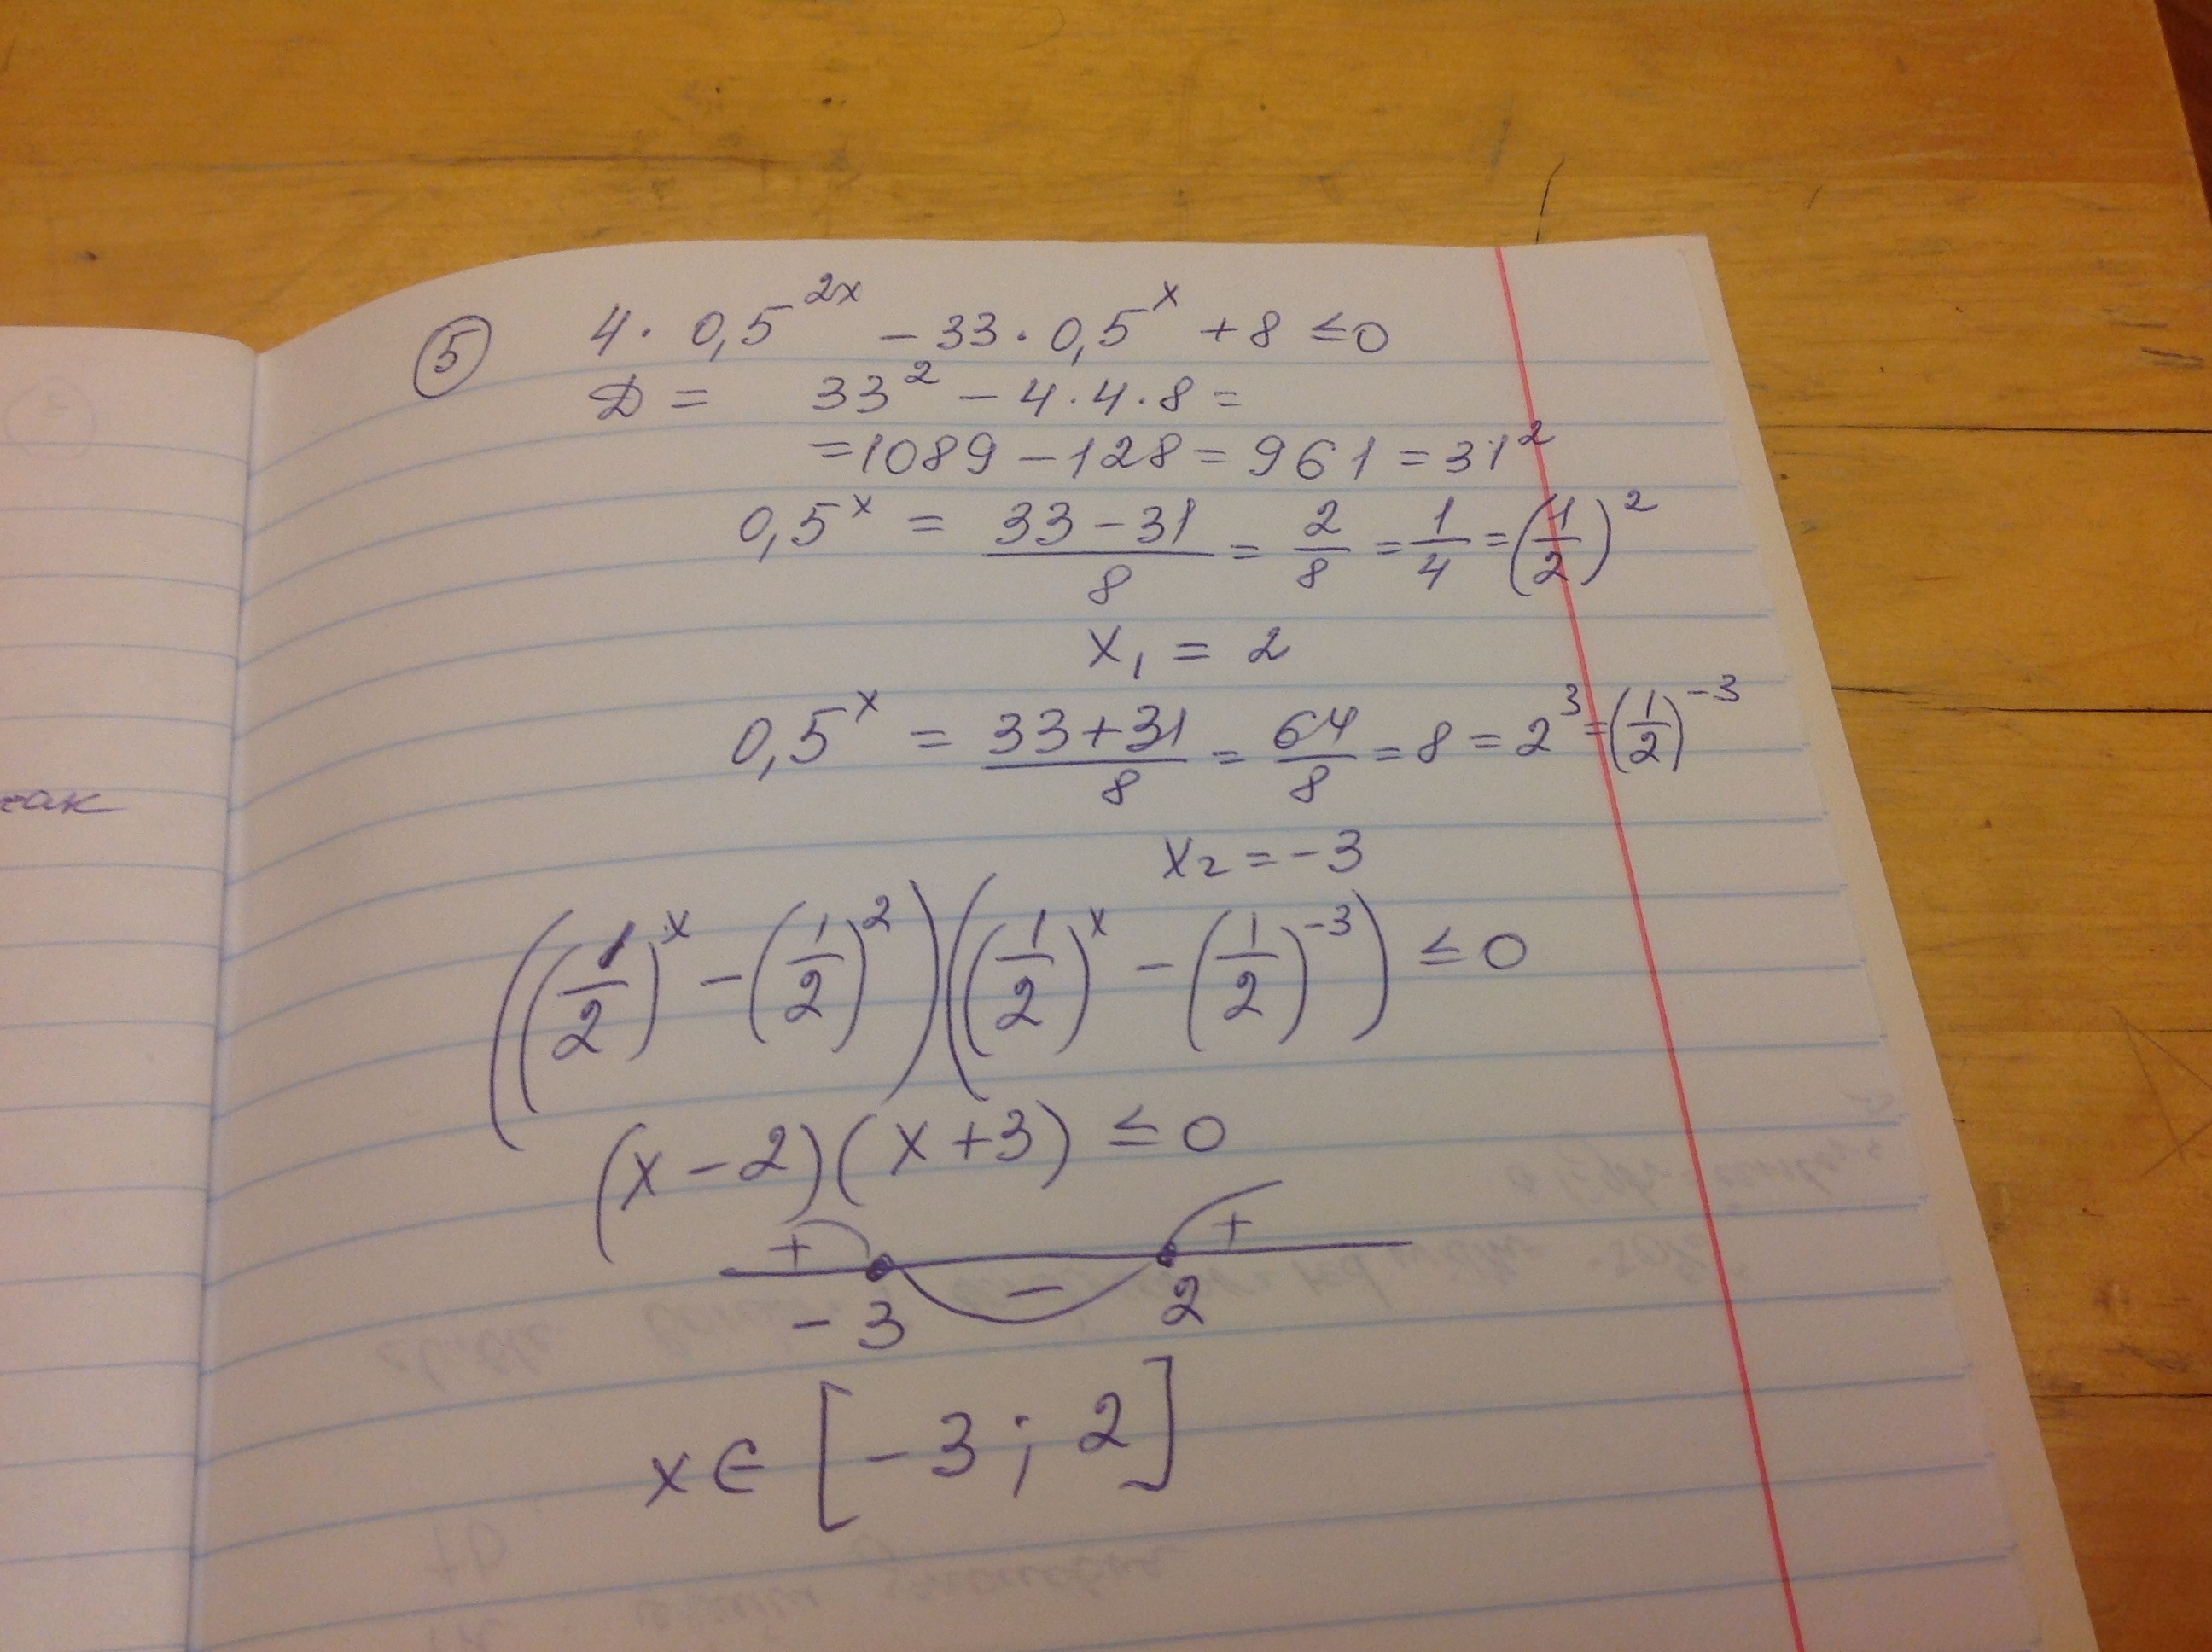 ⑤ 4 · 0,5^{2x} − 33 · 0,5^x + 8 ≤ 0
D = 33² − 4 · 4 · 8 =
= 1089 − 128 = 961 = 31²
0,5^x = (33 − 31)/8 = 2/8 = 1/4 = (1/2)²
x₁ = 2
0,5^x = (33 + 31)/8 = 64/8 = 8 = 2³ = (1/2)^{−3}
x₂ = −3
((1/2)^x − (1/2)²)((1/2)^x − (1/2)^{−3}) ≤ 0
(x − 2)(x + 3) ≤ 0
+ − +
−3 2
x ∈ [−3; 2]